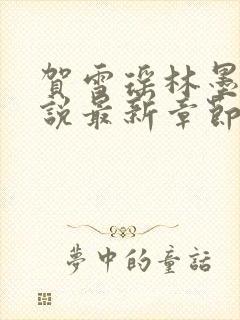 賀雪瑤林墨
說最新章節
夢中的童話